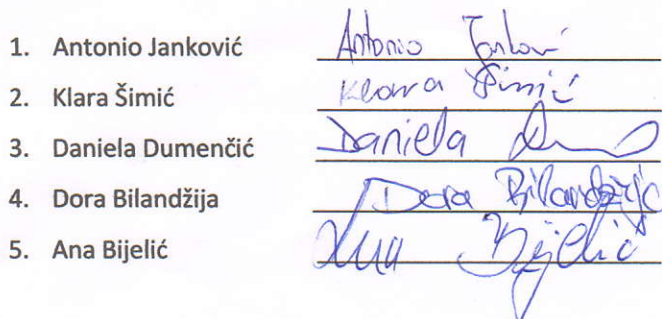 1. Antonio Janković Antonio Janković
2. Klara Šimić Klara Šimić
3. Daniela Dumenčić Daniela
4. Dora Bilandžija Dora Bilandžija
5. Ana Bijelić Ana Bijelić